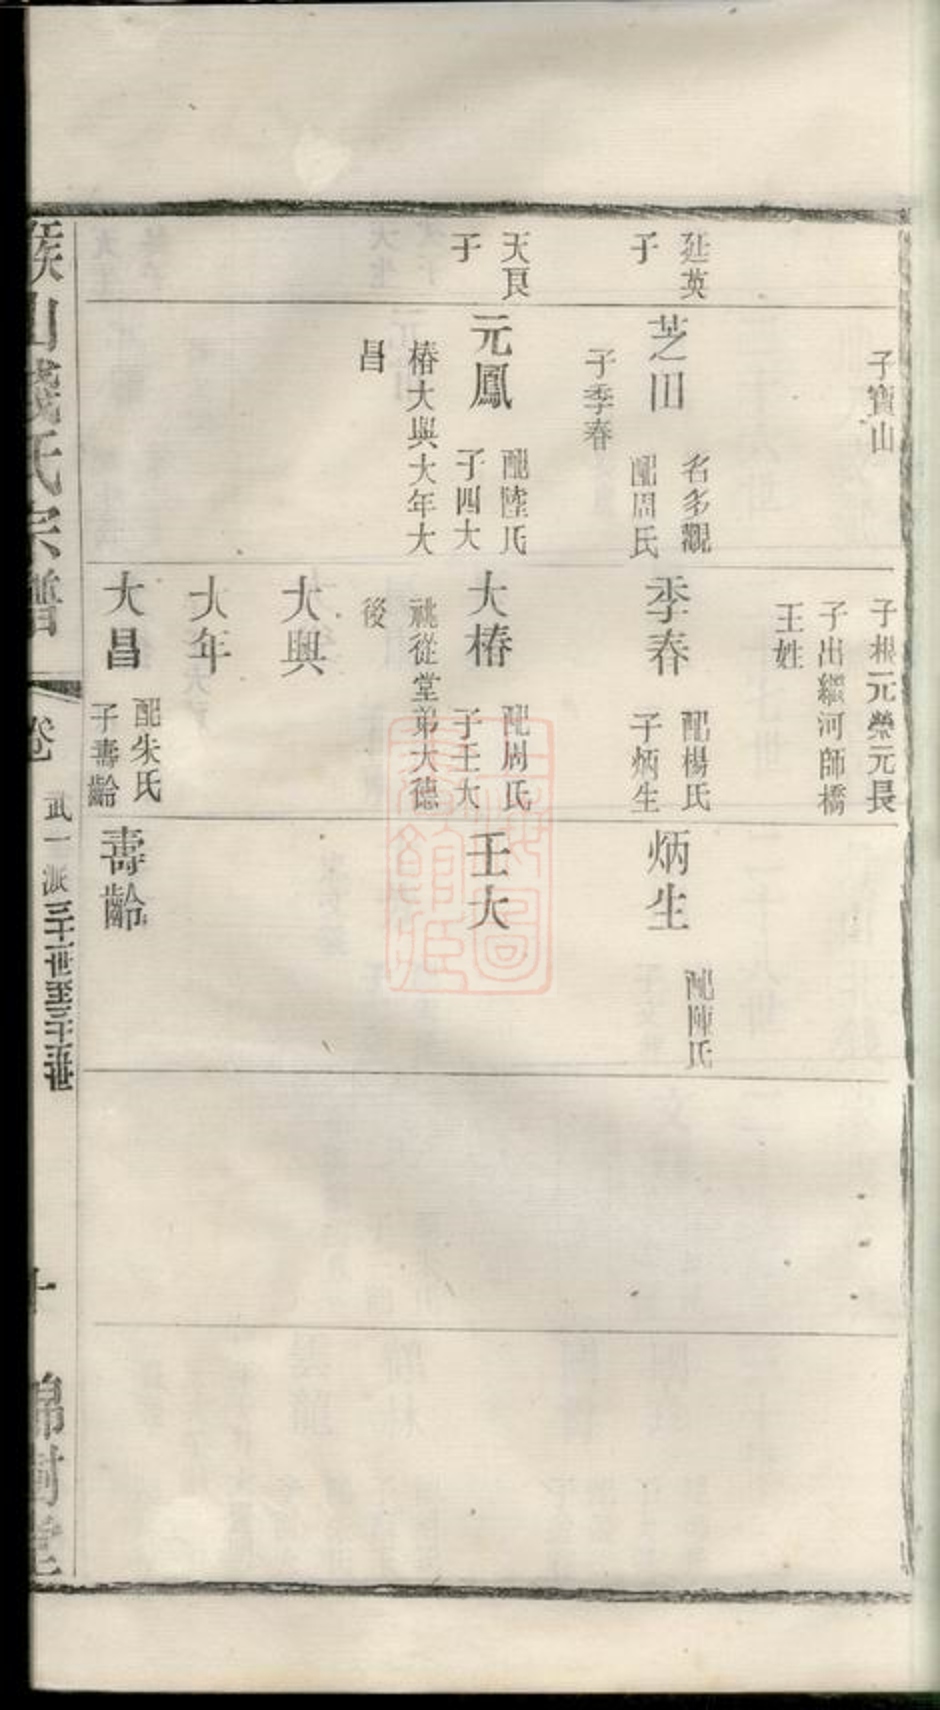 延英
子
天良
子
子寶山
芝田
名多觀
配周氏
子季春
元鳳
配陸氏
子四大
椿大興大年大
昌
子根元榮元長
子出繼河師橋
王姓
季春
配楊氏
子炳生
大椿
配周氏
子壬大
祧從堂弟大德
後
大興
大年
大昌
配朱氏
子壽齡
炳生
配陳氏
壬大
壽齡
山錢氏宗譜
卷
武一派
十
錦樹堂